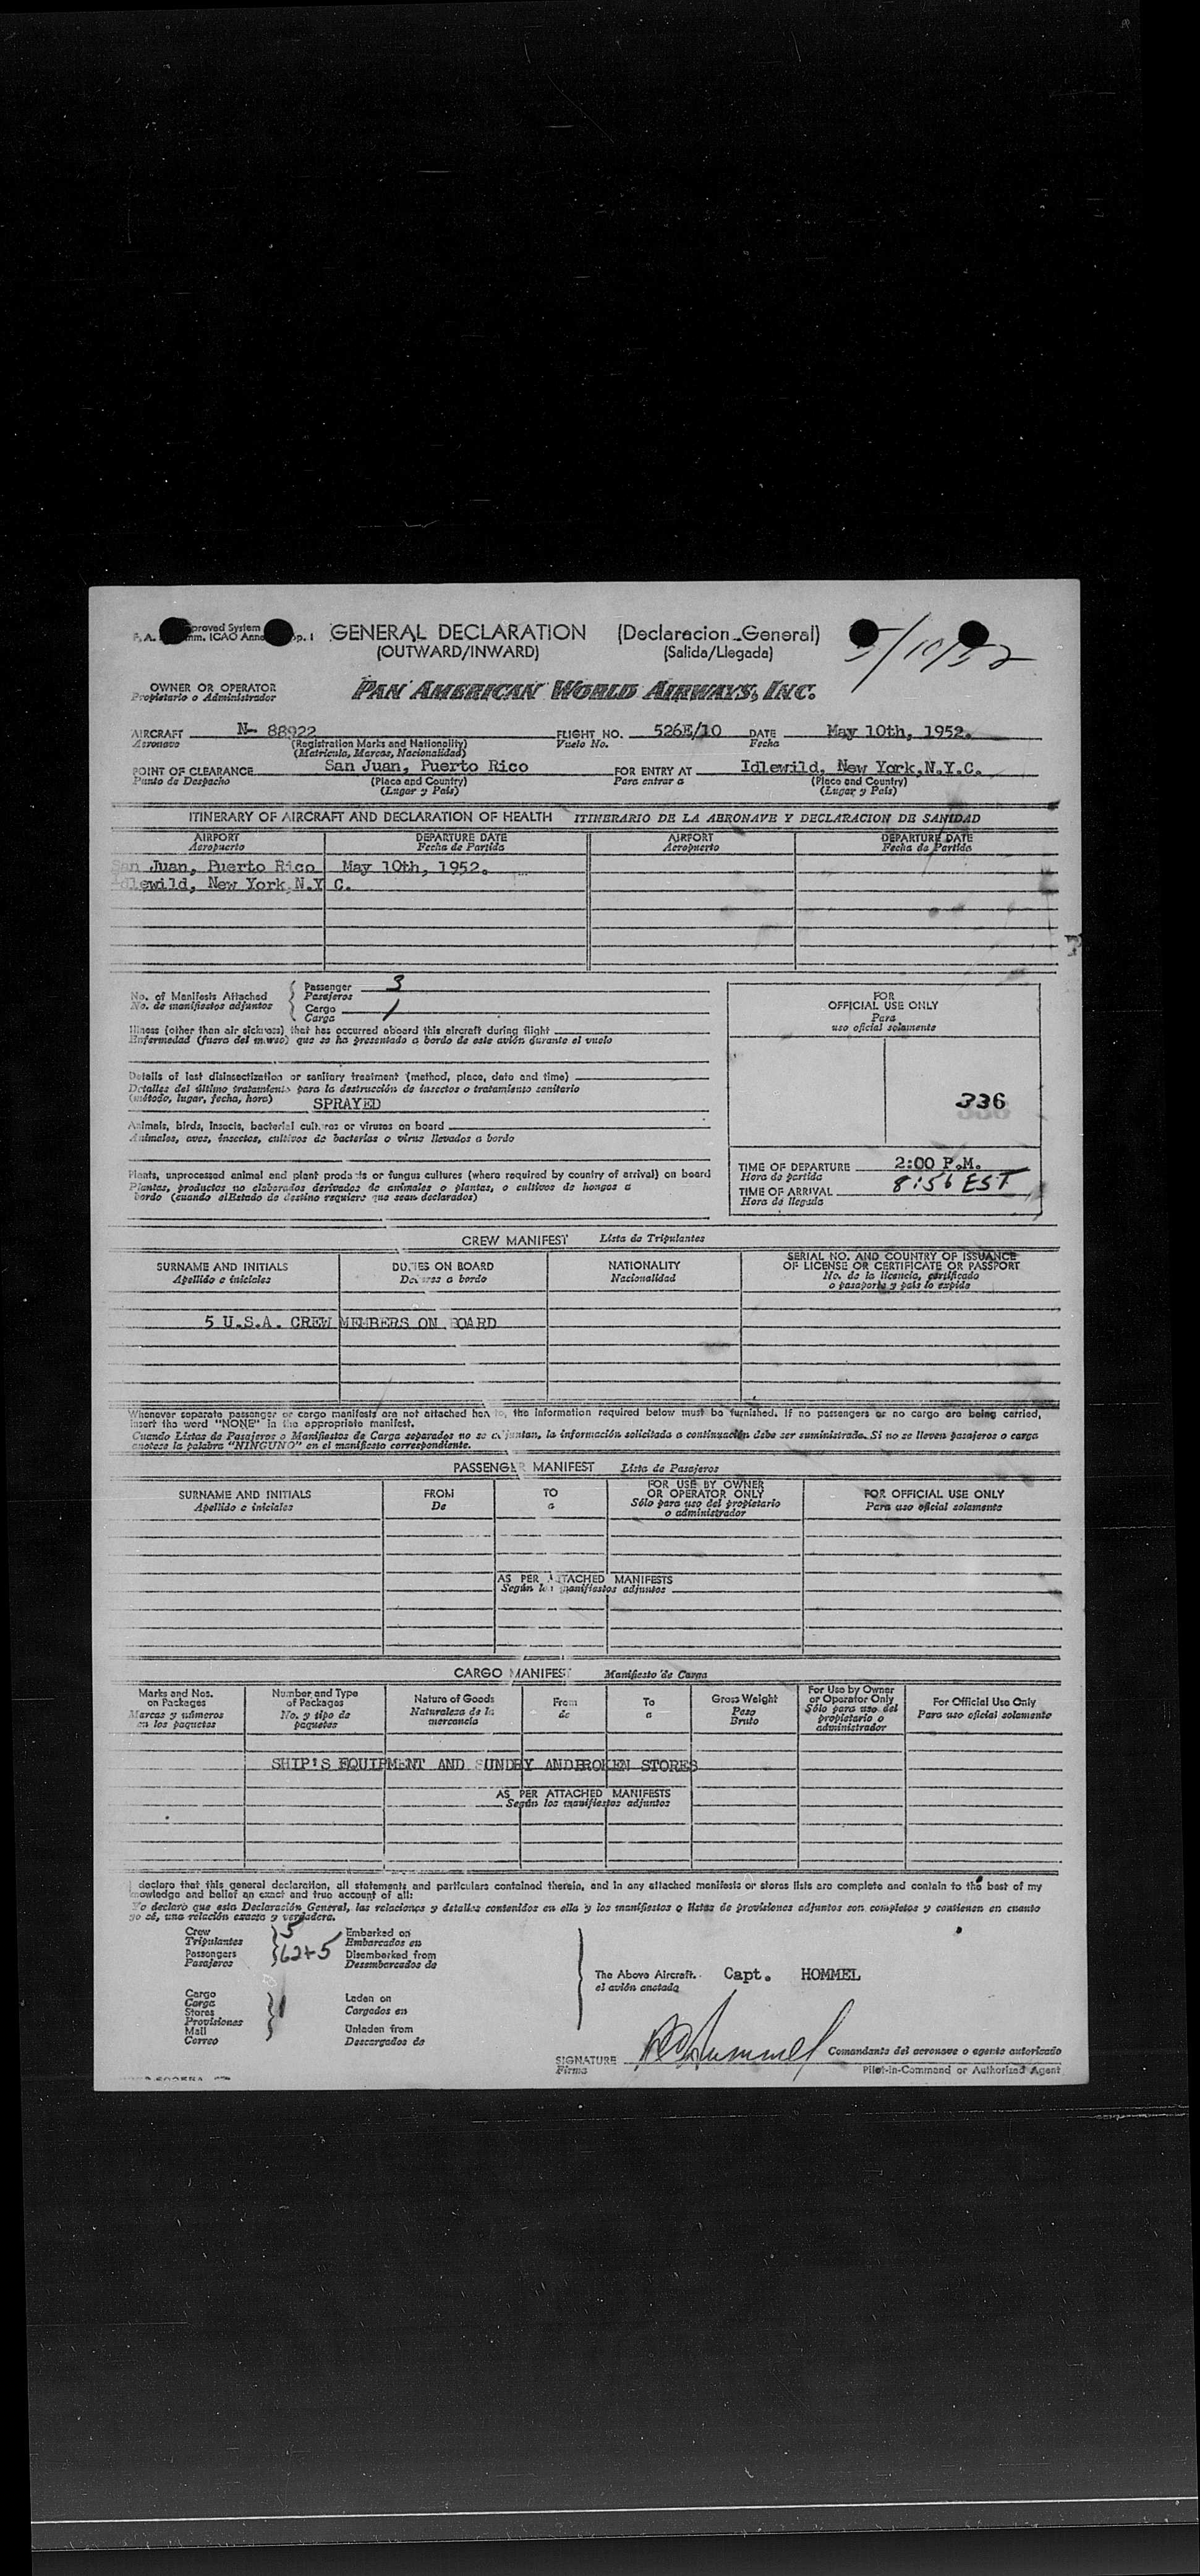 proved System
F. A. mm. ICAO Anne p. 1
GENERAL DECLARATION (Declaracion General)
(OUTWARD/INWARD) (Salida/Llegada)
5/10/52
OWNER OR OPERATOR
Propietario o Administrador
PAN AMERICAN WORLD AIRWAYS, INC.
AIRCRAFT N- 88922 FLIGHT NO. 526E/10 DATE May 10th, 1952.
Aeronave (Registration Marks and Nationality) Vuelo No. Fecha
(Matricula, Marcas, Nacionalidad)
POINT OF CLEARANCE San Juan, Puerto Rico FOR ENTRY AT Idlewild, New York,N.Y.C.
Punto de Despacho (Place and Country) Para entrar a (Place and Country)
(Lugar y País) (Lugar y País)
ITINERARY OF AIRCRAFT AND DECLARATION OF HEALTH ITINERARIO DE LA AERONAVE Y DECLARACION DE SANIDAD
AIRPORT DEPARTURE DATE AIRPORT DEPARTURE DATE
Aeropuerto Fecha de Partida Aeropuerto Fecha de Partida
San Juan, Puerto Rico May 10th, 1952.
Idlewild, New York,N.Y C.
No. of Manifests Attached Passenger 3
No. de manifiestos adjuntos Pasajeros
Cargo 1
Carga
Illness (other than air sickness) that has occurred aboard this aircraft during flight
Enfermedad (fuera del mareo) que se ha presentado a bordo de este avión durante el vuelo
Details of last disinsectization or sanitary treatment (method, place, date and time)
Detalles del último tratamiento para la destrucción de insectos o tratamiento sanitario
(método, lugar, fecha, hora) SPRAYED
Animals, birds, insects, bacterial cultures or viruses on board
Animales, aves, insectos, cultivos de bacterias o virus llevados a bordo
Plants, unprocessed animal and plant products or fungus cultures (where required by country of arrival) on board
Plantas, productos no elaborados derivados de animales o plantas, o cultivos de hongos a
bordo (cuando elEstado de destino requiere que sean declarados)
FOR
OFFICIAL USE ONLY
Para
uso oficial solamente
336
TIME OF DEPARTURE 2:00 P.M.
Hora de partida
TIME OF ARRIVAL 8:56 EST
Hora de llegada
CREW MANIFEST Lista de Tripulantes
SURNAME AND INITIALS DUTIES ON BOARD NATIONALITY SERIAL NO. AND COUNTRY OF ISSUANCE
OF LICENSE OR CERTIFICATE OR PASSPORT
Apellido e iniciales Deberes a bordo Nacionalidad No. de la licencia, certificado
o pasaporte y país lo expide
5 U.S.A. CREW MEMBERS ON BOARD
Whenever separate passenger or cargo manifests are not attached hereto, the information required below must be furnished. If no passengers or no cargo are being carried,
insert the word "NONE" in the appropriate manifest.
Cuando Listas de Pasajeros o Manifiestos de Carga separados no se adjuntan, la información solicitada a continuación debe ser suministrada. Si no se lleven pasajeros o carga
anotese la palabra "NINGUNO" en el manifiesto correspondiente.
PASSENGER MANIFEST Lista de Pasajeros
SURNAME AND INITIALS FROM TO FOR USE BY OWNER
OR OPERATOR ONLY FOR OFFICIAL USE ONLY
Apellido e iniciales De a Sólo para uso del propietario
o administrador Para uso oficial solamente
AS PER ATTACHED MANIFESTS
Según los manifiestos adjuntos
CARGO MANIFEST Manifiesto de Carga
Marks and Nos. on Packages Number and Type of Packages Nature of Goods From To Gross Weight For Use by Owner or Operator Only For Official Use Only
Marcas y números en los paquetes No. y tipo de paquetes Naturaleza de la mercancia de a Peso Bruto Sólo para uso del propietario o administrador Para uso oficial solamente
SHIP'S EQUIPMENT AND SUNDRY ANDBROKEN STORES
AS PER ATTACHED MANIFESTS
Según los manifiestos adjuntos
I declare that this general declaration, all statements and particulars contained therein, and in any attached manifests or stores lists are complete and contain to the best of my
knowledge and belief an exact and true account of all:
Yo declaro que esta Declaración General, las relaciones y detalles contenidos en ella y los manifiestos o listas de provisiones adjuntos son completos y contienen en cuanto
yo sé, una relación exacta y verdadera.
Crew 5 Embarked on
Tripulantes Embarcados en
Passengers 62+5 Disembarked from
Pasajeros Desembarcados de
The Above Aircraft. Capt. HOMMEL
el avión anotado
Cargo
Carga Laden on
Stores 1 Cargados en
Provisiones
Mail Unladen from
Correo Descargados de
SIGNATURE Comandante del aeronave o agente autorizado
Firma Pilot-in-Command or Authorized Agent